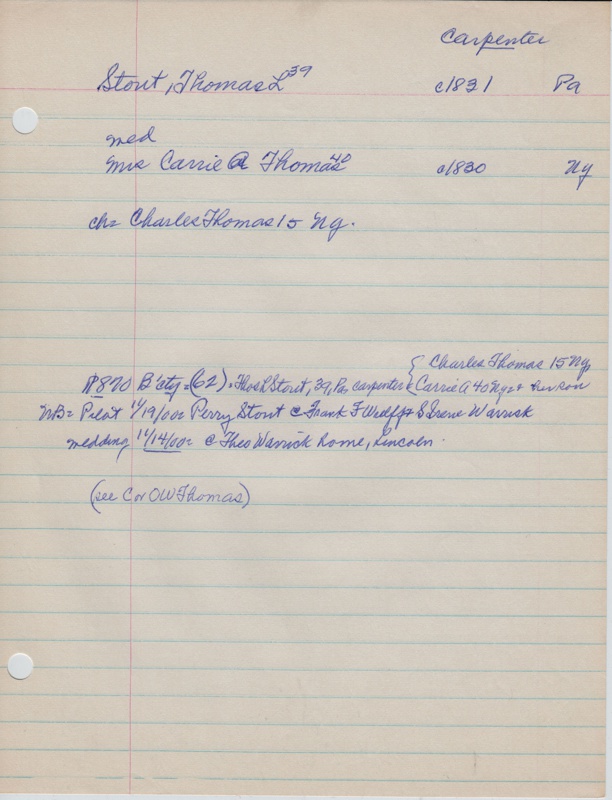 Carpenter
Stout, Thomas L 39 c1831 Pa
med
Mrs Carrie A Thomas 40 c1830 Ny
ch= Charles Thomas 15 Ny.
{ Charles Thomas 15 Ny
1870 B'cty = (62). Thos L Stout, 39, Pa, carpenter & Carrie A 40 Ny & her son
NB= Pilot 11/19/00= Perry Stout @ Frank F &  S Irene Warrick
wedding 11/14/00= @ Theo Warrick home, Lincoln.
(see C or OW Thomas)